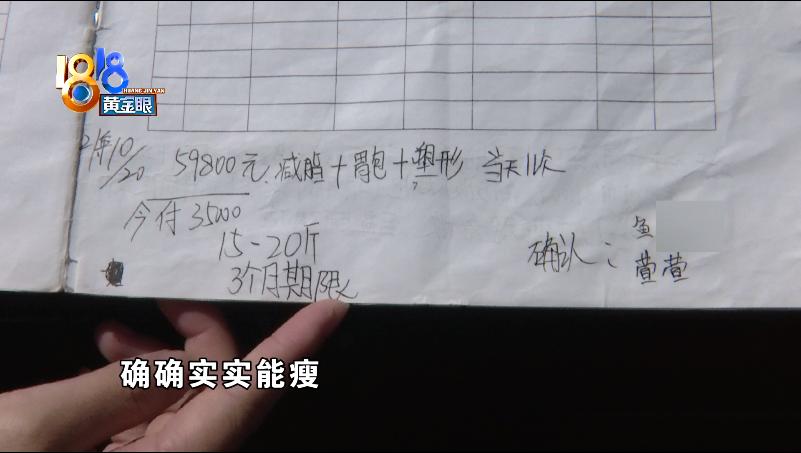 1818
HUANG JIN YAN
黄金眼
21年10/20 59800元.减脂+胃包+塑形 当天1次
今付35000
15-20斤
3个月期限
确认:鱼
萱萱
确确实实能瘦